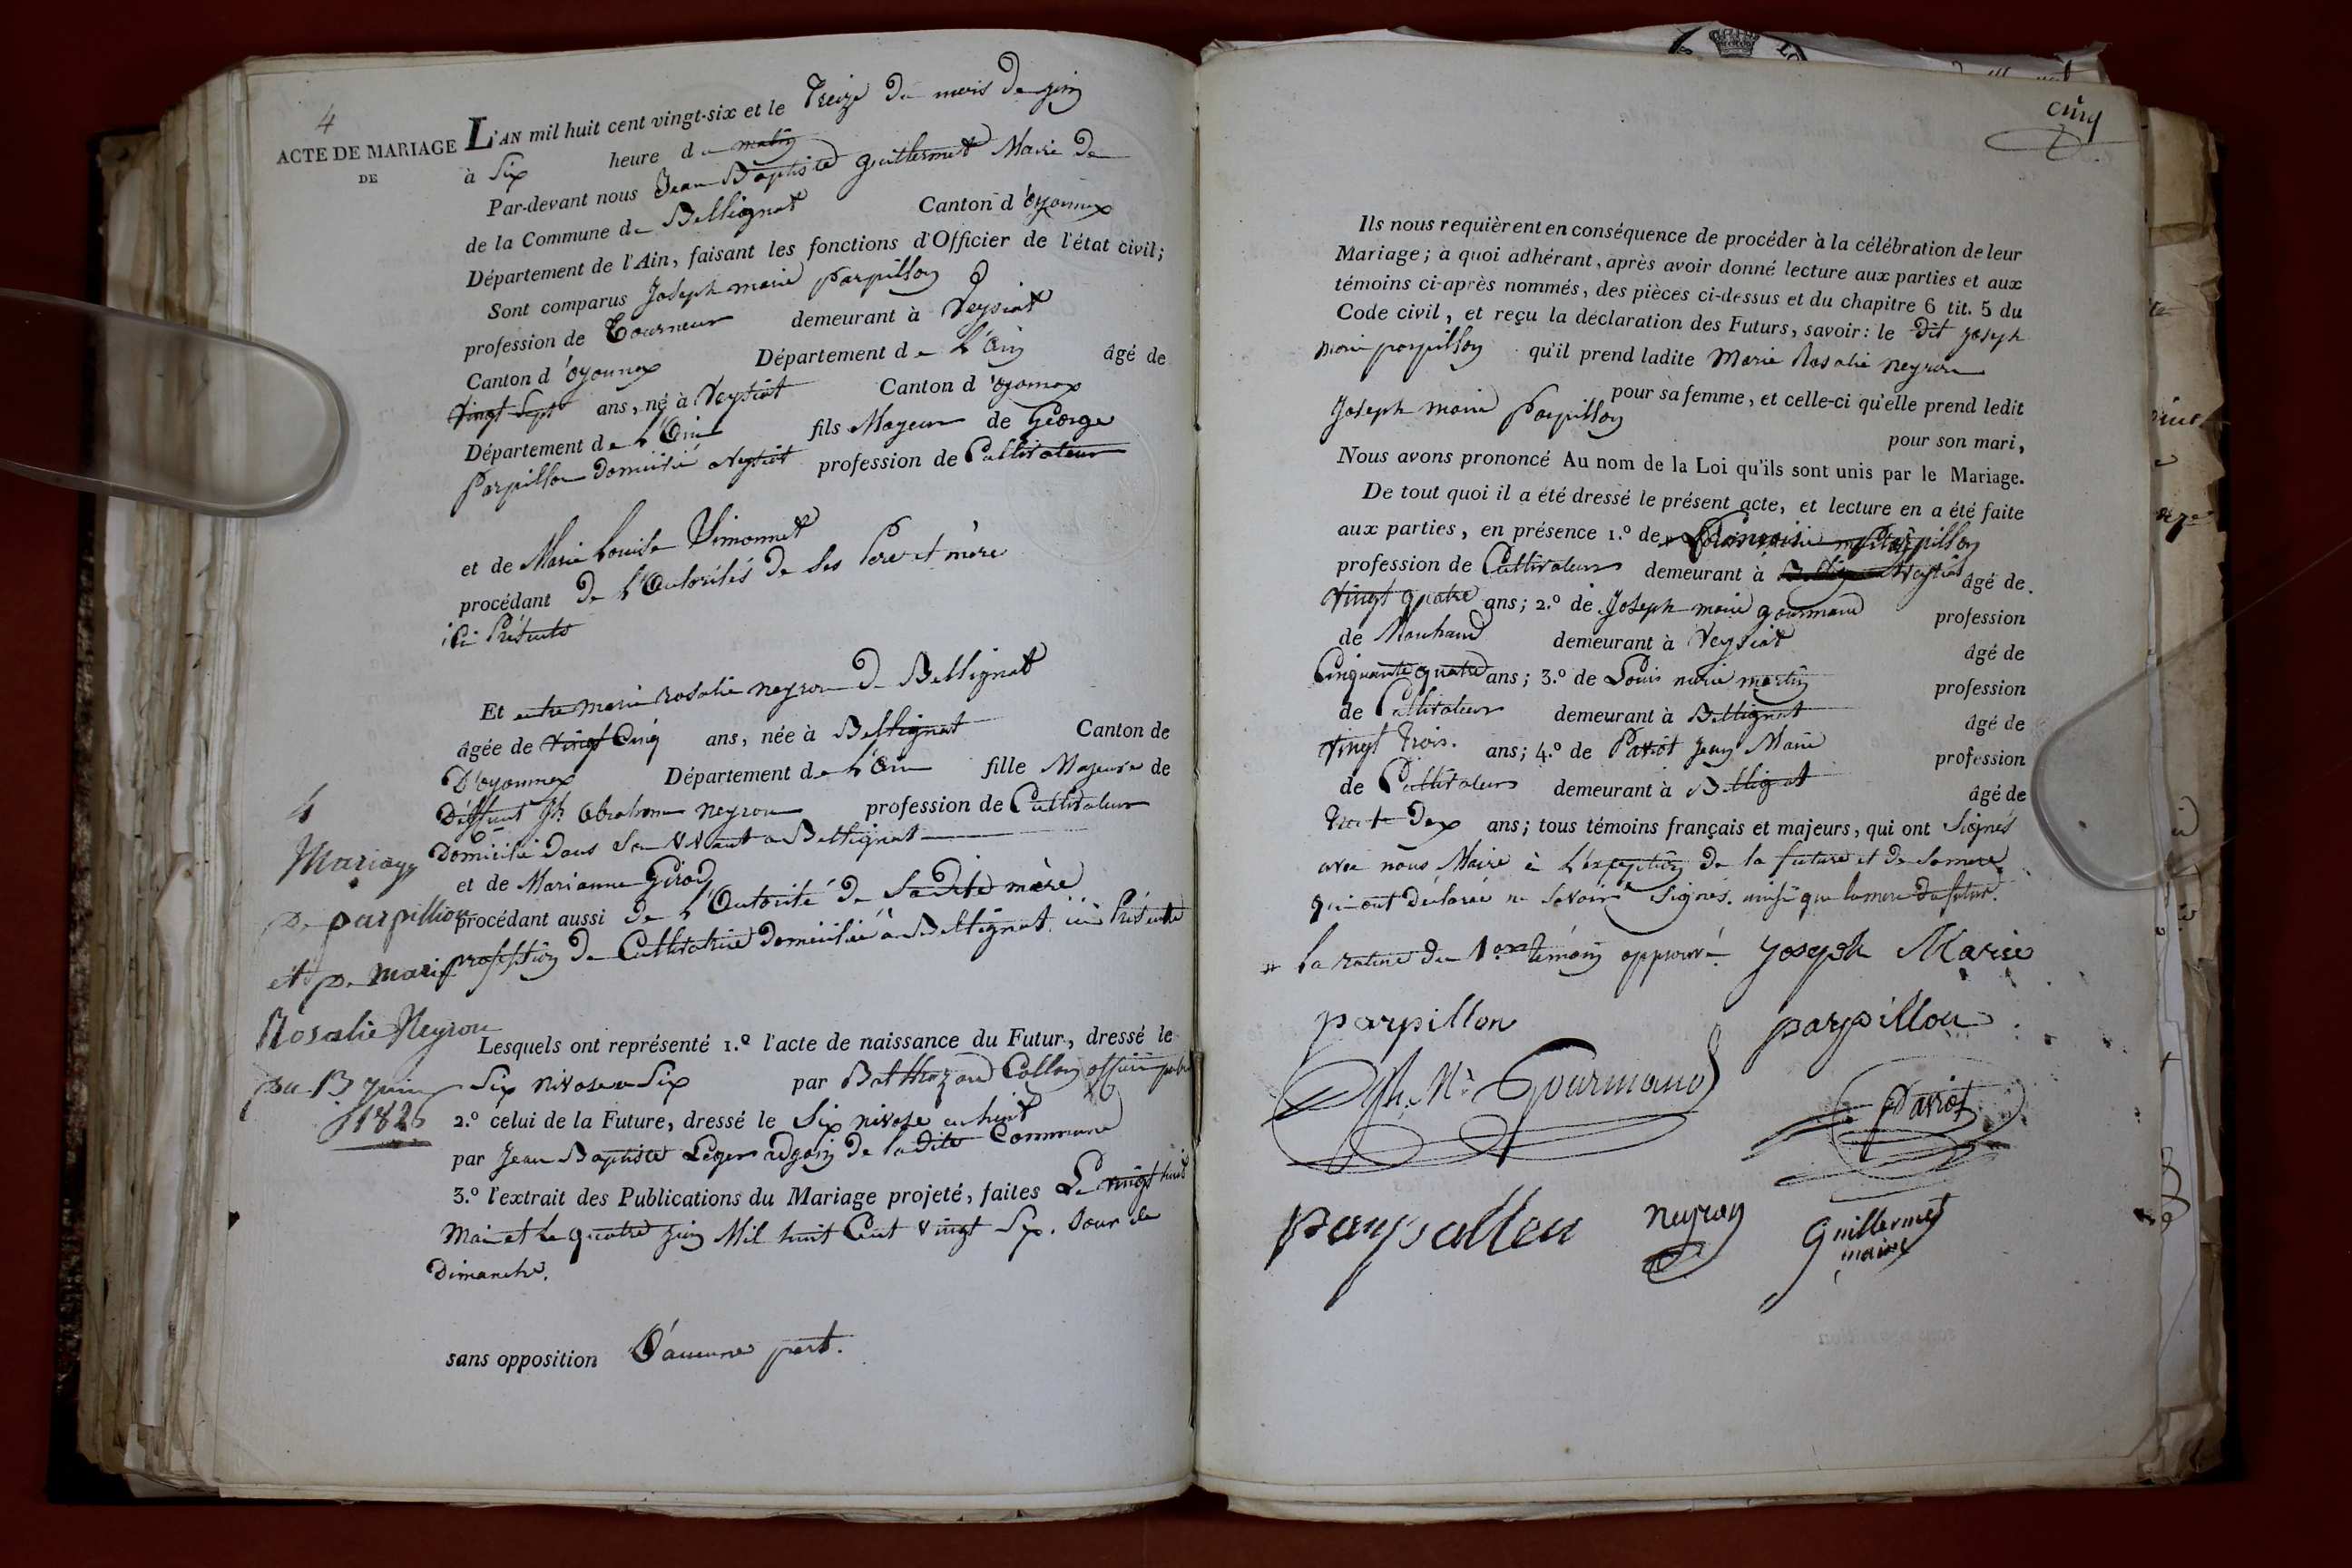 4
ACTE DE MARIAGE
DE
L'AN mil huit cent vingt-six et le Treize du mois de juin
à Six heure du matin
Par-devant nous Jean Baptiste Guillermet Maire de
de la Commune de Bellignat Canton d'oyonnax
Département de l'Ain, faisant les fonctions d'Officier de l'état civil;
Sont comparus Joseph marie parpillon
profession de Tourneur demeurant à Veysiat
Canton d'oyonnax Département de l'Ain âgé de
vingt Sept ans, né à Veysiat Canton d'oyonnax
Département de l'Ain fils Mageur de George
parpillon domicilié a Veysiat profession de Cultivateur
et de Marie Louise Simonnet
procédant de l'Autorités de ses Pere et mère
ici Présents
Et entre marie rosalie neyron de Bellignat
âgée de vingt Cinq ans, née à Bellignat Canton de
D'oyonnax Département de l'Ain fille Majeure de
Deffunt Jh abraham neyron profession de Cultivateur
Domicilié dans son vivant a Bellignat
et de Marianne Girod
procédant aussi de l'Autorité de Sadite mère
profession de Cultivatrice domiciliée à Bellignat ici Présente
4
Mariage
De parpillion
et De marie
Rosalie Neyron
Du 13 juin
1826
Lesquels ont représenté 1.º l'acte de naissance du Futur, dressé le
Six nivose an Six par Balthazard Collon officier public
2.º celui de la Future, dressé le Six nivose an huit
par Jean Baptiste Léger adjoin de ladite Commune
3.º l'extrait des Publications du Mariage projeté, faites Le vingt huit
Mai et le quatre juin Mil huit Cent vingt Six. Jour de
Dimanche.
sans opposition D'aucune part.
cinq
Ils nous requièrent en conséquence de procéder à la célébration de leur
Mariage; à quoi adhérant, après avoir donné lecture aux parties et aux
témoins ci-après nommés, des pièces ci-dessus et du chapitre 6 tit. 5 du
Code civil, et reçu la déclaration des Futurs, savoir: le dit joseph
marie parpillon qu'il prend ladite Marie Rosalie neyron
pour sa femme, et celle-ci qu'elle prend ledit
Joseph marie Parpillon
pour son mari,
Nous avons prononcé Au nom de la Loi qu'ils sont unis par le Mariage.
De tout quoi il a été dressé le présent acte, et lecture en a été faite
aux parties, en présence 1.º de # parpillon
profession de Cultivateur demeurant à Veysiat âgé de
vingt quatre ans; 2.º de Joseph marie gourmand profession
de Marchand demeurant à Veysiat âgé de
Cinquante quatre ans; 3.º de Louis marie martin profession
de Cultivateur demeurant à Bellignat âgé de
vingt trois. ans; 4.º de Paviot Jean Marie profession
de Cultivateur demeurant à Bellignat âgé de
Trente Deux ans; tous témoins français et majeurs, qui ont Signés
avec nous Maire à l'exception de la future et de sa mere
qui ont déclarée ne savoir Signés. ainsi que la mere du futur.
# la rature du 1er témoin approuvé. joseph Marie
parpillon parpillon
Jh. Mie Gourmand Paviot
neyron Guillermet
maire